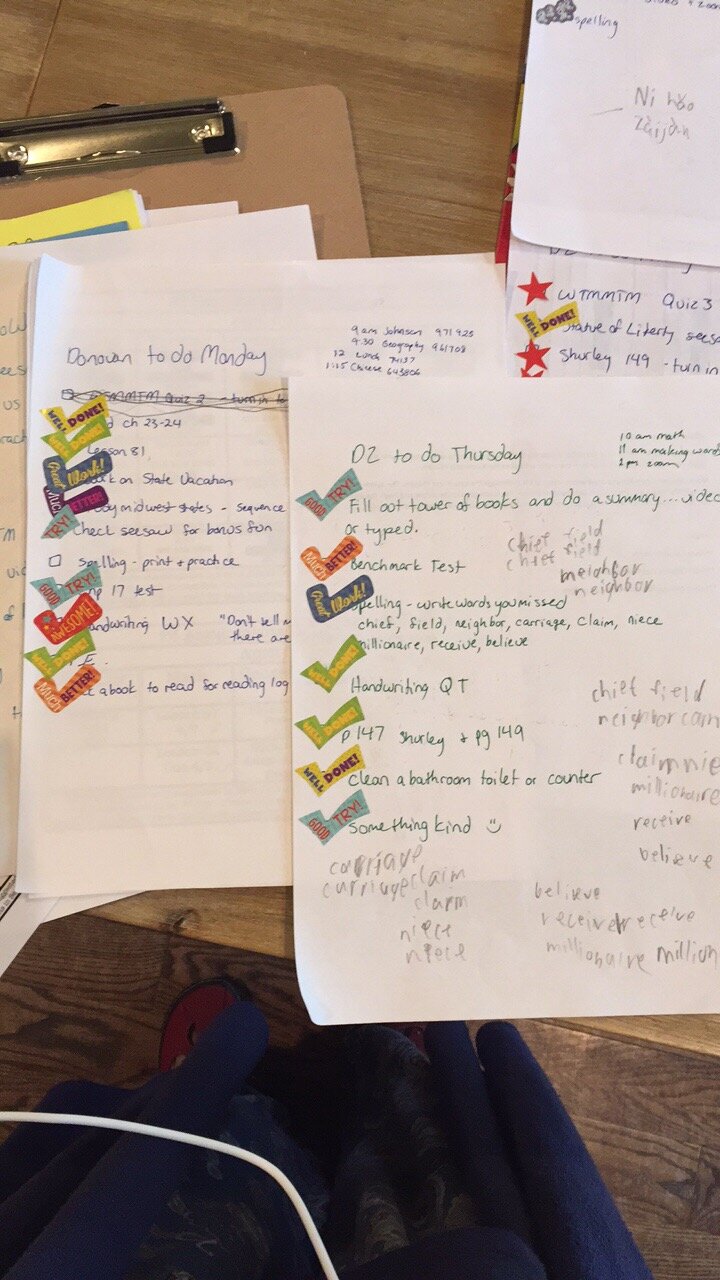 spelling
Ni hǎo
Zàijiàn
WTMMTM Quiz 3
WELL DONE!
Statue of Liberty seesa
Shurley 149 - turn in
9 am Johnson 971925
9:30 Geography 961708
12 Lunch 74137
1:15 Chinese 643806
Donovan to do Monday
WTMMTM Quiz 2 - turn in to
WELL DONE!
ch 23-24
WELL DONE!
Lesson 81
Good Work!
on State Vacation
MUCH BETTER!
midwest states - sequence
TRY!
Check seesaw for bonus fun
spelling - print + practice
GOOD TRY!
17 test
AWESOME!
Handwriting WX "Don't tell m
there are
WELL DONE!
MUCH BETTER!
a book to read for reading log
10 am math
11 am making words
2 pm zoom
DZ to do Thursday
GOOD TRY!
Fill out tower of books and do a summary... video
or typed.
chief field
chief field
MUCH BETTER!
Benchmark Test
neighbor
neighbor
Good Work!
Spelling - write words you missed
chief, field, neighbor, carriage, claim, niece
millionaire, receive, believe
WELL DONE!
Handwriting QT
chief field
neighbor carr
WELL DONE!
p 147 Shurley + pg 149
claim nie
WELL DONE!
clean a bathroom toilet or counter
millionaire
GOOD TRY!
something kind
receive
believe
carriage
carriage claim
claim
niece
niece
believe
receive receive
millionaire million